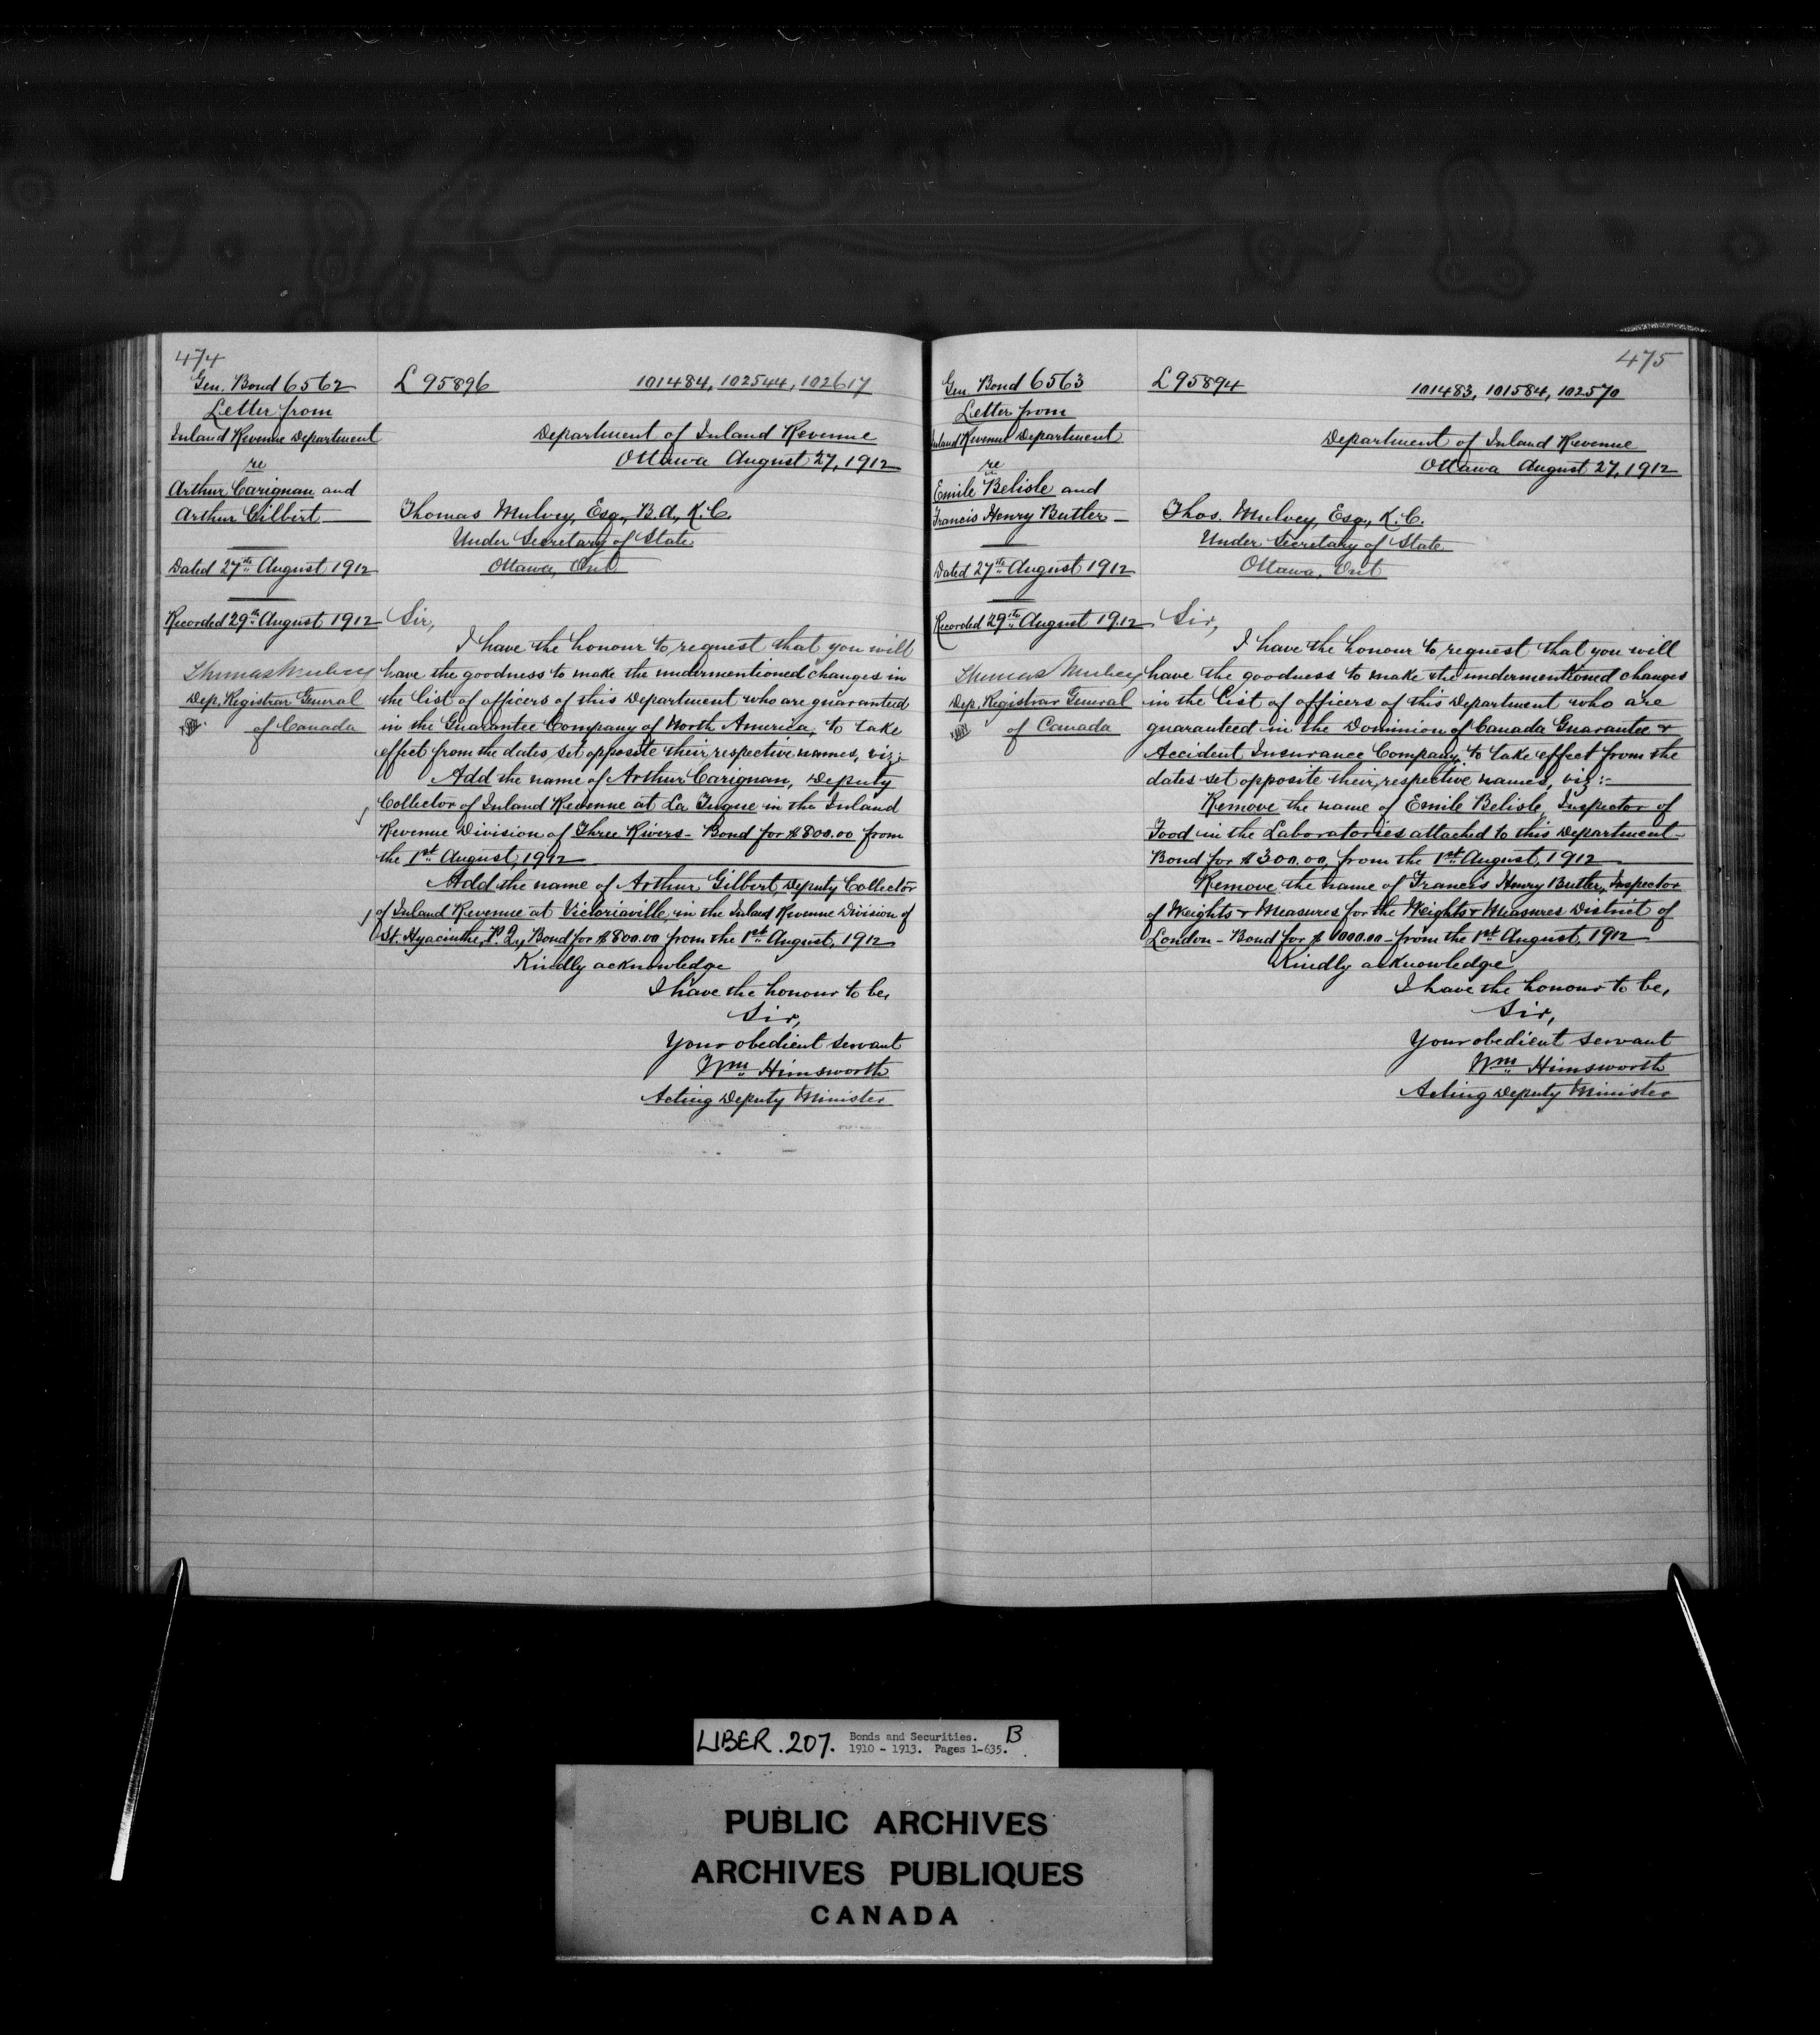 474
Gen. Bond 6562
Letter from
Inland Revenue Department
re
Arthur Carignan and
Arthur Gilbert
Dated 27th August 1912
Recorded 29th August 1912
Thomas Mulvey
Dep. Registrar General
of Canada
L 95896
101484, 102544, 102617
Department of Inland Revenue
Ottawa August 27, 1912
Thomas Mulvey, Esq., B.A., K.C.
Under Secretary of State
Ottawa, Ont
Sir,
I have the honour to request that you will
have the goodness to make the undermentioned changes in
the list of officers of this Department who are guaranteed
in the Guarantee Company of North America, to take
effect from the dates set opposite their respective names, viz:
Add the name of Arthur Carignan, Deputy
Collector of Inland Revenue at La Tuque in the Inland
Revenue Division of Three Rivers - Bond for $800.00 from
the 1st August, 1912
Add the name of Arthur Gilbert Deputy Collector
of Inland Revenue at Victoriaville, in the Inland Revenue Division of
St. Hyacinthe, P.Q., Bond for $800.00 from the 1st August, 1912
Kindly acknowledge
I have the honour to be,
Sir,
Your obedient servant
Wm Himsworth
Acting Deputy Minister
475
Gen. Bond 6563
Letter from
Inland Revenue Department
re
Emile Belisle and
Francis Henry Butler -
Dated 27th August 1912
Recorded 29th August 1912
Thomas Mulvey
Dep. Registrar General
of Canada
L 95894
101483, 101584, 102570
Department of Inland Revenue
Ottawa August 27, 1912
Thos. Mulvey, Esq., K.C.
Under Secretary of State
Ottawa, Ont
Sir,
I have the honour to request that you will
have the goodness to make the undermentioned changes
in the list of officers of this Department who are
guaranteed in the Dominion of Canada Guarantee &
Accident Insurance Company, to take effect from the
dates set opposite their respective names, viz:-
Remove the name of Emile Belisle, Inspector of
Food in the Laboratories attached to this Department -
Bond for $300.00, from the 1st August, 1912
Remove the name of Francis Henry Butler, Inspector
of Weights & Measures for the Weights & Measures District of
London - Bond for $1000.00 - from the 1st August, 1912
Kindly acknowledge
I have the honour to be,
Sir,
Your obedient servant
Wm Himsworth
Acting Deputy Minister
LIBER. 207. Bonds and Securities. B
1910 - 1913. Pages 1-635.
PUBLIC ARCHIVES
ARCHIVES PUBLIQUES
CANADA